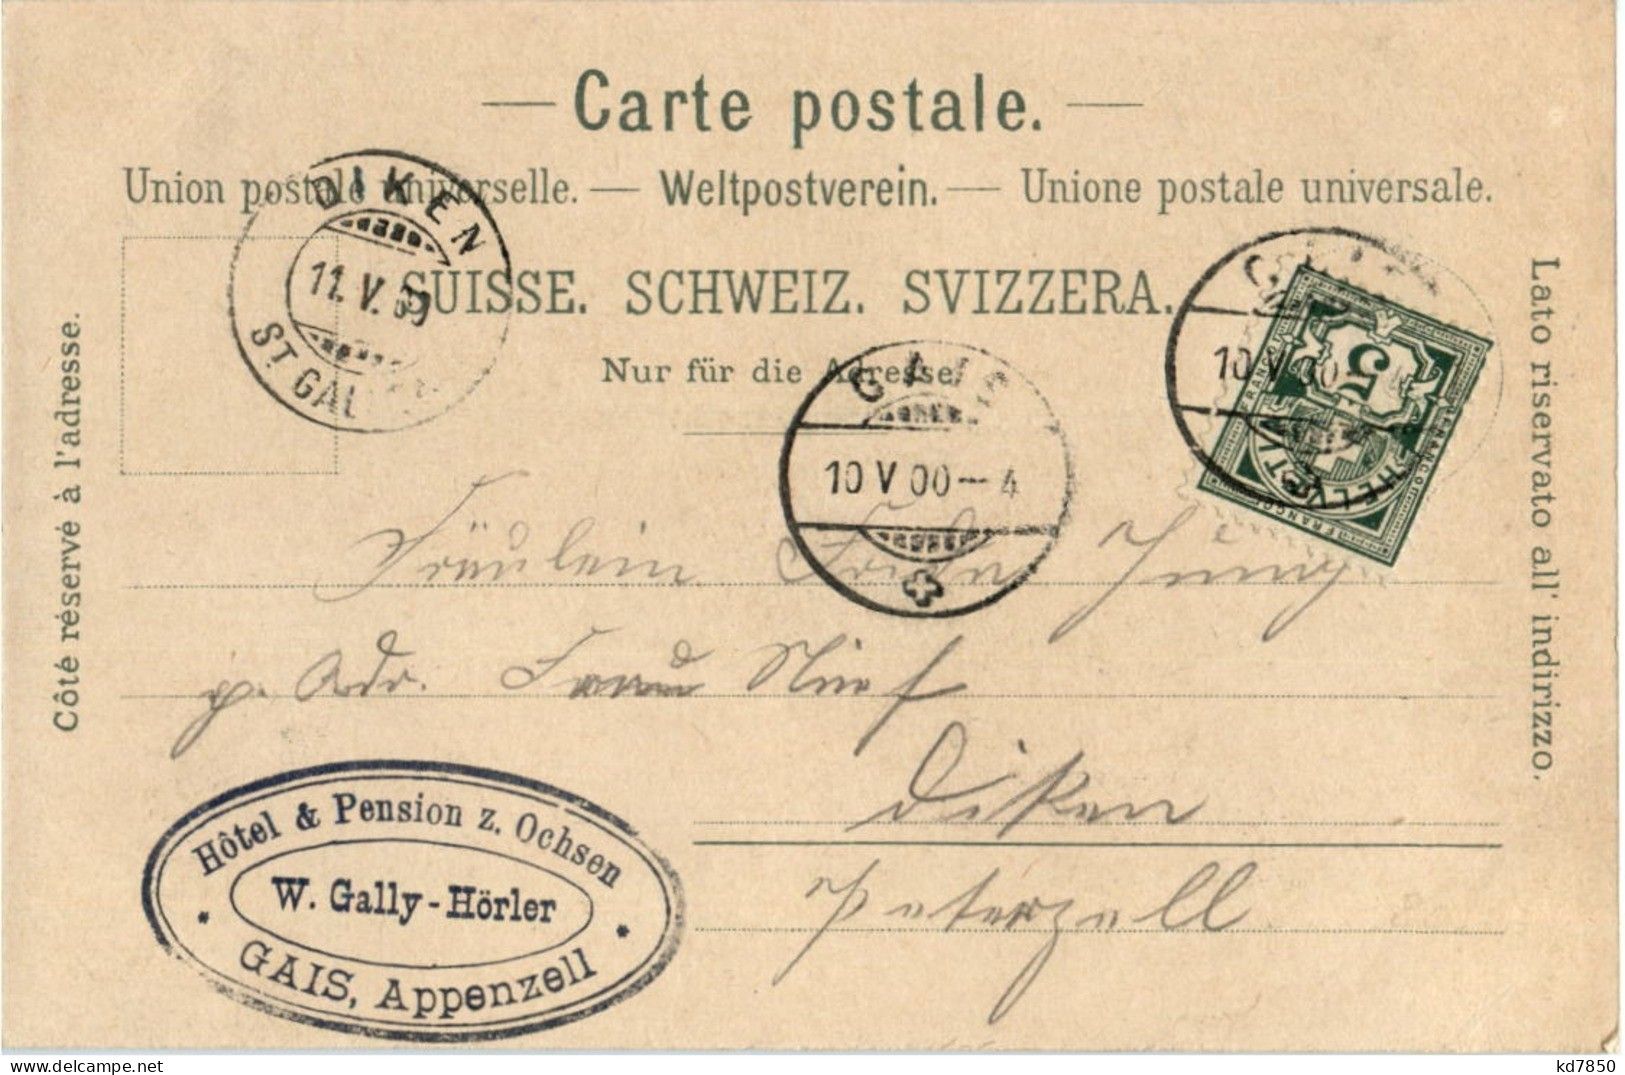 Carte postale.
Union postale universelle. — Weltpostverein. — Unione postale universale.
SUISSE. SCHWEIZ. SVIZZERA.
Nur für die Adresse
Côté réservé à l'adresse.
Lato riservato all' indirizzo.
DIKEN
11. V. 00
ST. GALLEN
GAIS
10 V 00 — 4
GAIS
10 V 00
HELVETIA
FRANCO
5
FRANCO
FRANCO
Fräulein Frida Jung
p. Adr. Frau Nief
Diken
Peterzell
Hôtel & Pension z. Ochsen
W. Gally-Hörler
* GAIS, Appenzell *
kd7850